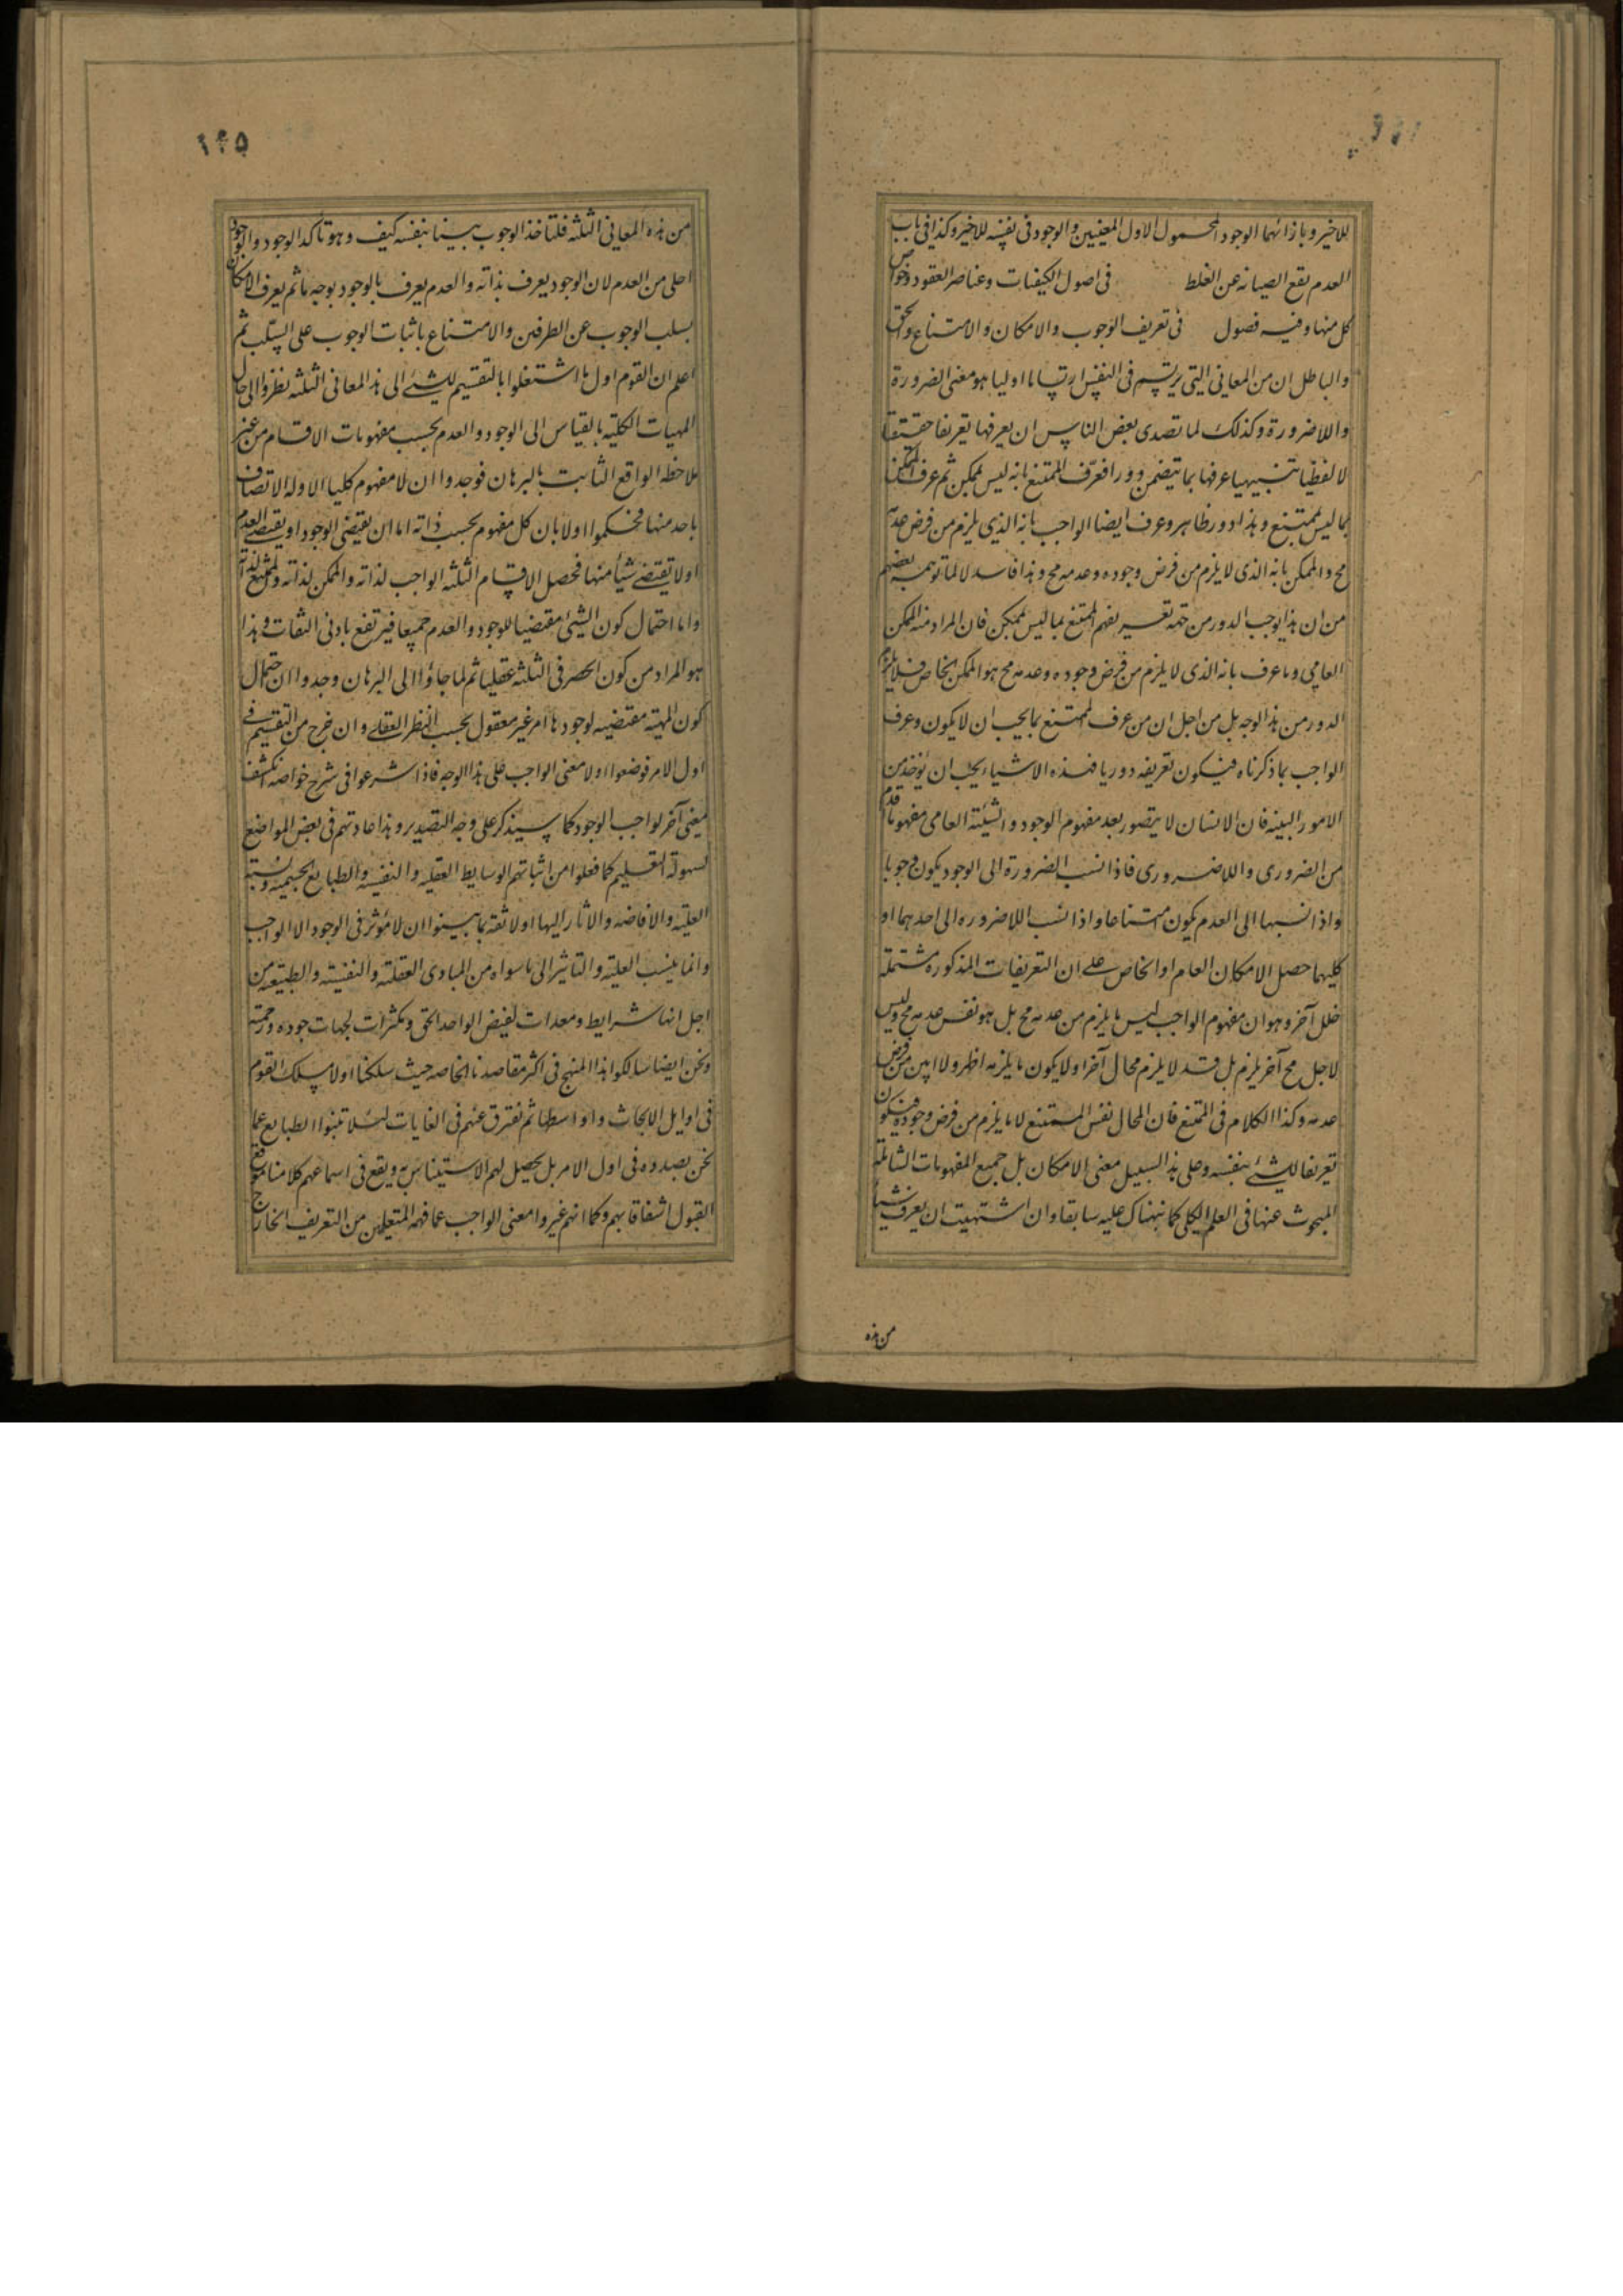 للاخير وبازائهما الوجود المحمول لاول المعنيين والوجود فى نفسه للاخير وكذا فى باب
العدم يقع الصيانه عن الغلط فى اصول الكيفيات وعناصر العقود وخواص
كل منها وفيه فصول فى تعريف الوجوب والامكان والامتناع والحق
والباطل ان من المعانى التى يرتسم فى النفس ارتساما اوليا هو معنى الضرورة
واللاضرورة وكذلك لما تصدى بعض الناس ان يعرفها تعريفا حقيقيا
لا لفظيا تنبيهيا عرفها بما يتضمن دورا فعرف الممتنع بانه ليس بممكن ثم عرف الممكن
بما ليس بممتنع وهذا دور ظاهر وعرف ايضا الواجب بانه الذى يلزم من فرض عدمه
مح والممكن بانه الذى لا يلزم من فرض وجوده وعدمه مح وهذا فاسد لا لما توهمه بعضهم
من ان هذا يوجب الدور من جهة تفسيرهم الممتنع بما ليس بممكن فان المراد منه الممكن
العامى وما عرف بانه الذى لا يلزم من فرض وجوده وعدمه مح هو الممكن الخاص فلا يلزم
الدور من هذا الوجه بل من اجل ان من عرف الممتنع بما يجب ان لا يكون وعرف
الواجب بما ذكرناه فيكون تعريفه دوريا فهذه الاشياء يجب ان يؤخذ من
الامور البينه فان الانسان لا يتصور بعد مفهوم الوجود والشيئية العامى مفهوما اقدم
من الضرورى واللاضرورى فاذا نسب الضرورة الى الوجود يكون وجوبا
واذا نسبها الى العدم يكون امتناعا واذا نسب اللاضروره الى احدهما او
كليهما حصل الامكان العام او الخاص على ان التعريفات المذكوره مشتملة
خلل آخر وهو ان مفهوم الواجب ليس ما يلزم من عدمه مح بل هو نفس عدمه مح وليس
لاجل مح آخر يلزم بل قد لا يلزم محال آخر او لا يكون ما يلزمه اظهر ولا ابين من فرض
عدمه وكذا الكلام فى الممتنع فان المحال نفس الممتنع لا ما يلزم من فرض وجوده فيكون
تعريفا للشئ بنفسه وعلى هذا السبيل معنى الامكان بل جميع المفهومات الشاملة
المبحوث عنها فى العلم الكلى كما نبهناك عليه سابقا وان اشتهيت ان يعرف شيئا
من هذه
١٢٥
من هذه المعانى الثلثه فلتاخذ الوجوب بينا بنفسه كيف وهو تاكد الوجود والوجود
اجلى من العدم لان الوجود يعرف بذاته والعدم يعرف بالوجود بوجه ما ثم يعرف الامكان
بسلب الوجوب عن الطرفين والامتناع باثبات الوجوب على السلب ثم
اعلم ان القوم اول ما اشتغلوا بالتقسيم للشئ الى هذ المعانى الثلثه نظروا الى حال
المهيات الكليه بالقياس الى الوجود والعدم بحسب مفهومات الاقسام من غير
ملاحظه الواقع الثابت بالبرهان فوجدوا ان لا مفهوم كليا الا وله الاتصاف
باحد منها فحكموا اولا بان كل مفهوم بحسب ذاته اما ان يقتضى الوجود او يقتضى العدم
اولا يقتضى شيئا منها فحصل الاقسام الثلثه الواجب لذاته والممكن لذاته والممتنع لذاته
واما احتمال كون الشيئ مقتضيا للوجود والعدم جميعا فيرتفع بادنى التفات وهذا
هو المراد من كون الحصر فى الثلثه عقليا ثم لما جاؤا الى البرهان وجدوا ان احتمال
كون المهيه مقتضيه لوجودها امر غير معقول بحسب النظر العقلى وان خرج من التقسيم فى
اول الامر فوضعوا اولا معنى الواجب على هذا الوجه فاذا شرعوا فى شرح خواصه انكشف
معنى آخر لواجب الوجود كما سيذكر على وجه التصدير وهذا عادتهم فى بعض المواضع
لسهولة التعليم كما فعلوا من اثباتهم الوسايط العقليه والنفسيه والطبايع الجسميه ونسبة
العلية والافاضه والاثار اليها اولا ثقه بما بينوا ان لا مؤثر فى الوجود الا الواجب
وانما ينسب العلية والتاثير الى ما سواه من المبادى العقلية والنفسية والطبيعة من
اجل انها شرايط ومعدات لفيض الواحد الحق وتكثرات لجهات جوده ورحمته
ونحن ايضا سالكوا هذا المنهج فى اكثر مقاصدنا الخاصه حيث سلكنا اولا مسلك القوم
فى اوايل الابحاث واواسطها ثم نفترق عنهم فى الغايات لئلا تنبوا الطبايع عما
نحن بصدده فى اول الامر بل يحصل لهم الاستيناس به ويقع فى اسماعهم كلامنا موقع
القبول اشفاقا بهم وكما انهم غيروا معنى الواجب عما فهمه المتعلمين من التعريف الخارج